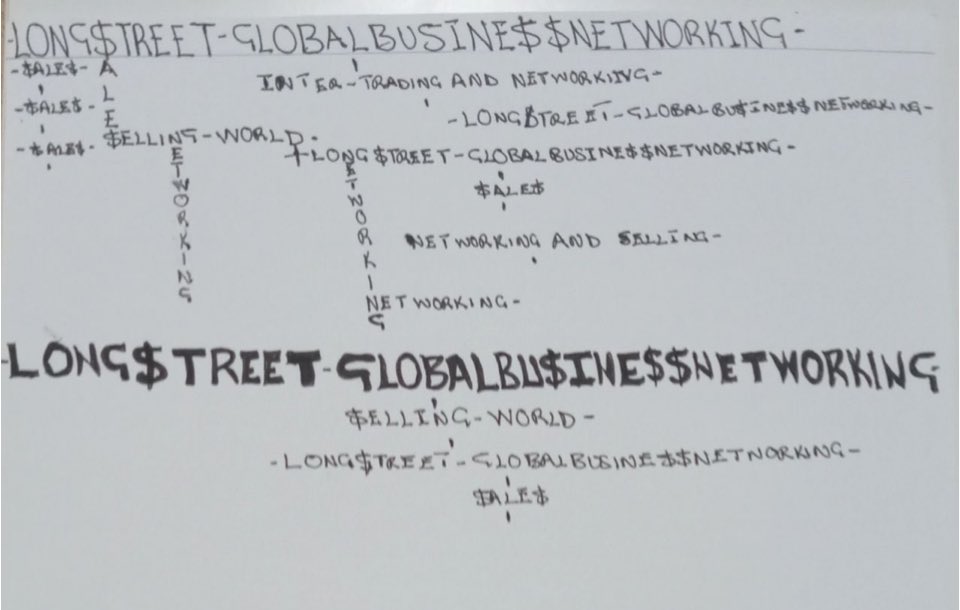 -LONG$TREET-GLOBALBUSINE$$NETWORKING-
-$ALE$-
INTER-TRADING AND NETWORKING-
-$ALE$-
-LONG$TREET-GLOBALBU$INE$$NETWORKING-
-$ALE$-
$ELLING-WORLD-
LONG$TREET-GLOBALBUSINE$$NETWORKING-
$ALE$
NETWORKING
NETWORKING
NETWORKING AND $ELLING-
NETWORKING-
-LONG$TREET-GLOBALBU$INE$$NETWORKING
$ELLING-WORLD-
-LONG$TREET-GLOBALBUSINE$$NETWORKING-
$ALE$